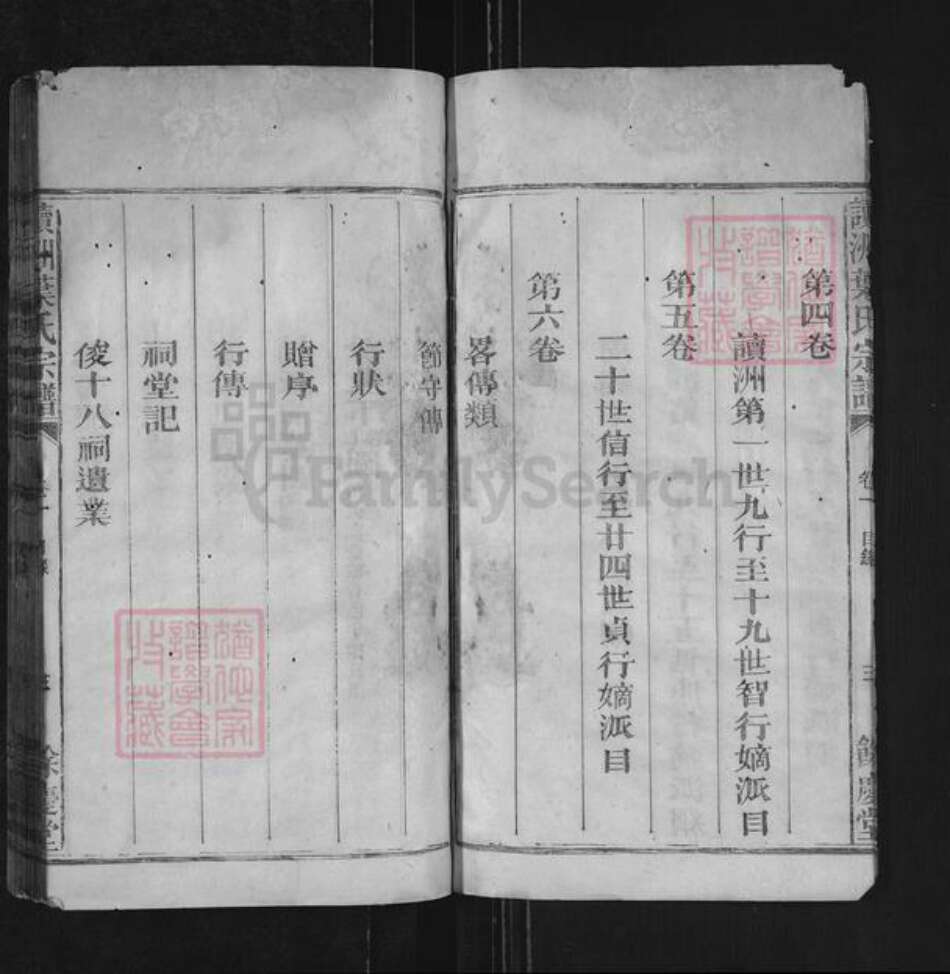 讀洲葉氏宗譜 卷一 目錄 三 餘慶堂
第四卷
讀洲第一世九行至十九世智行嫡派目
第五卷
二十世信行至廿四世貞行嫡派目
第六卷
畧傳類
節守傳
行狀
贈序
行傳
祠堂記
俊十八祠遺業
讀洲葉氏宗譜 卷一 三 餘慶堂
譜學會
收藏
FamilySearch
譜學會
收藏